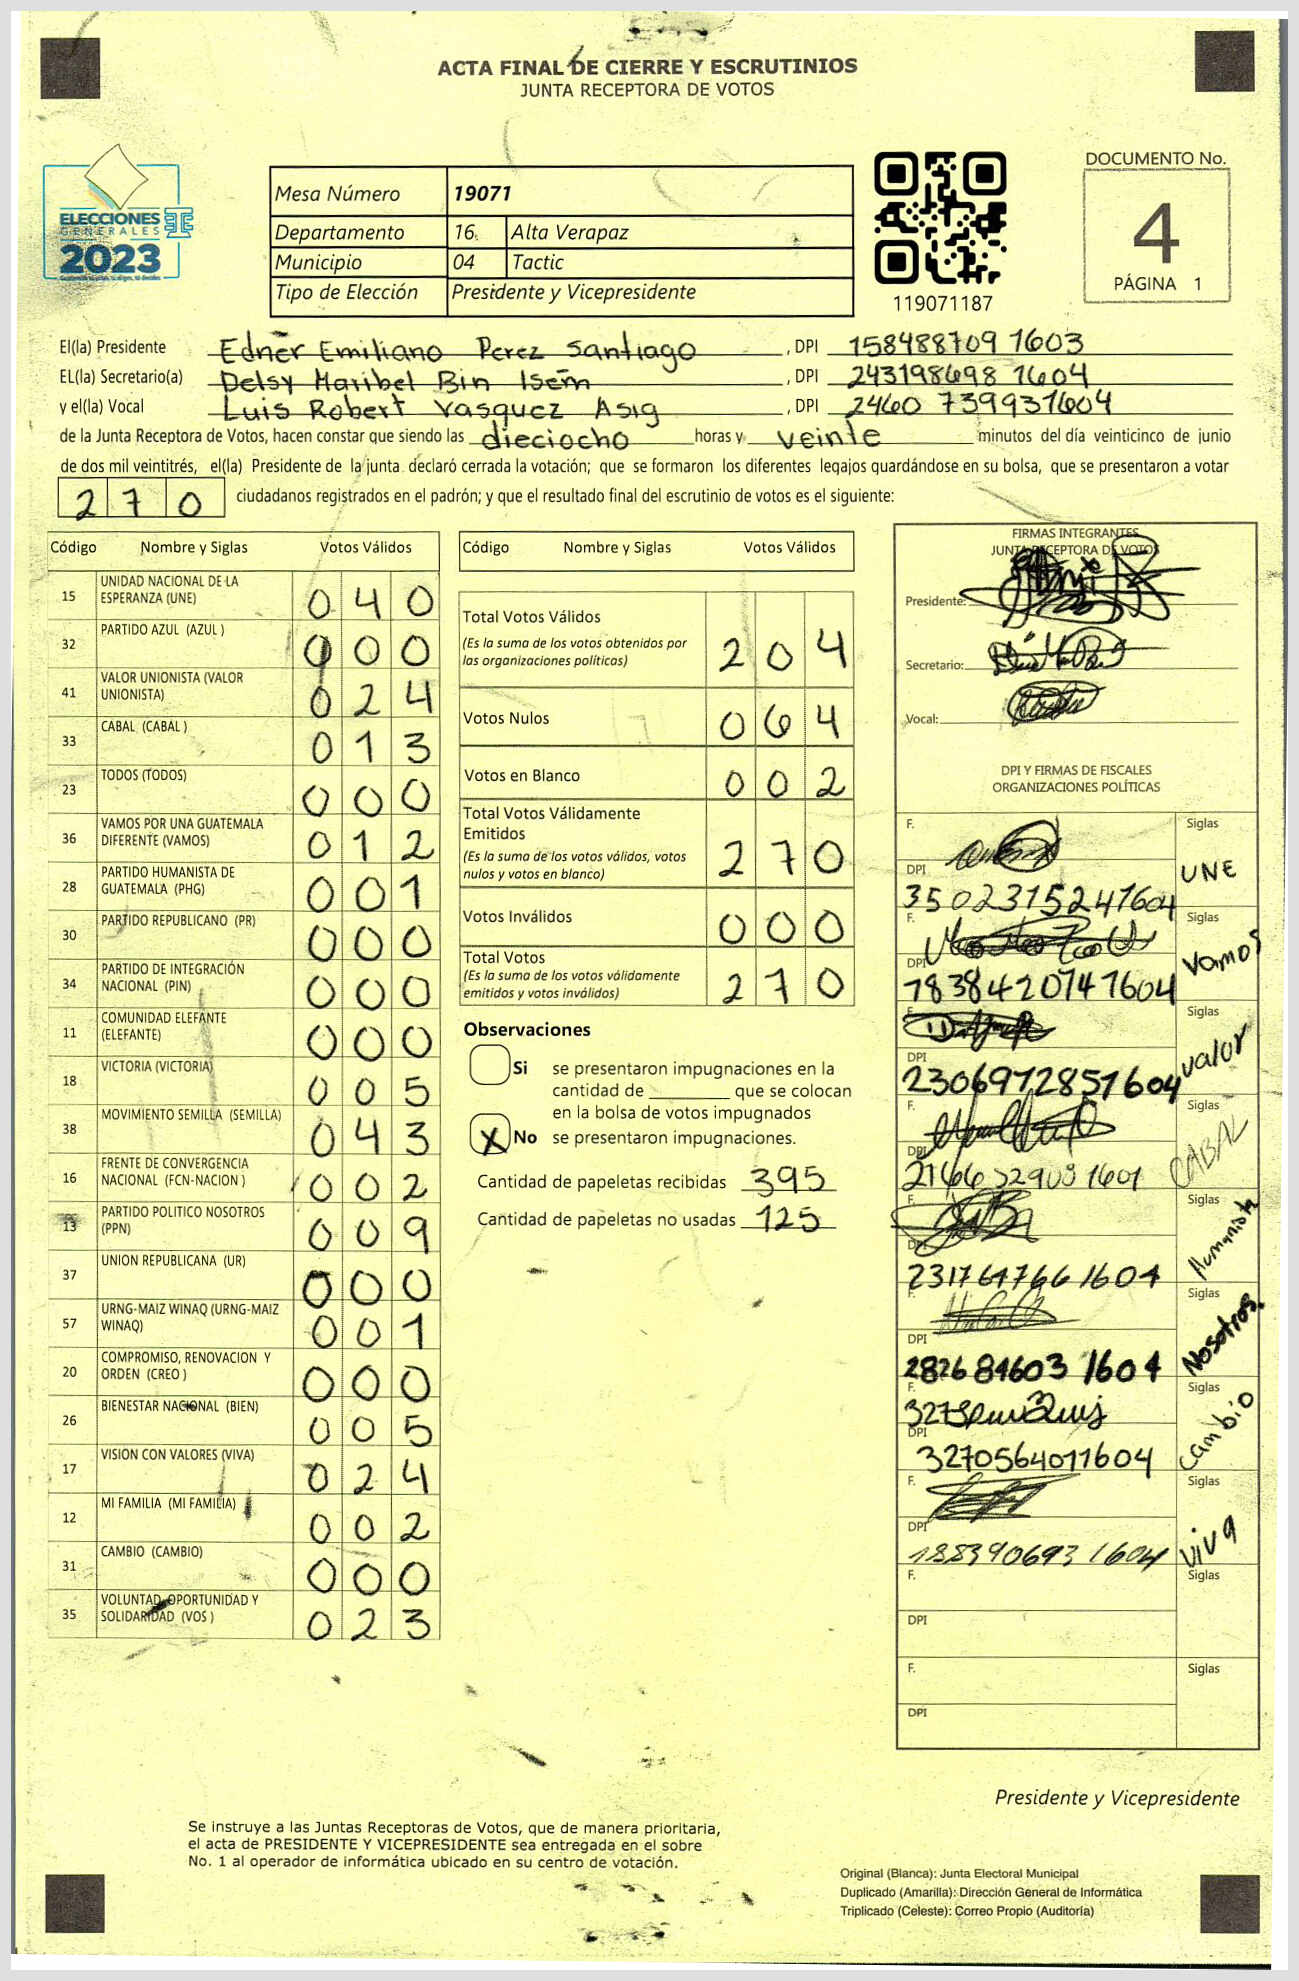 ACTA FINAL DE CIERRE Y ESCRUTINIOS
JUNTA RECEPTORA DE VOTOS
ELECCIONES
GENERALES
2023
Mesa Número 19071
Departamento 16 Alta Verapaz
Municipio 04 Tactic
Tipo de Elección Presidente y Vicepresidente
119071187
DOCUMENTO No.
4
PÁGINA 1
El(la) Presidente Edner Emiliano Perez Santiago , DPI 158488709 1603
EL(la) Secretario(a) Delsy Maribel Bin Isem , DPI 243198698 1604
y el(la) Vocal Luis Robert Vasquez Asig , DPI 2460 739931604
de la Junta Receptora de Votos, hacen constar que siendo las dieciocho horas y veinte minutos del día veinticinco de junio
de dos mil veintitrés, el(la) Presidente de la junta declaró cerrada la votación; que se formaron los diferentes legajos guardándose en su bolsa, que se presentaron a votar
270 ciudadanos registrados en el padrón; y que el resultado final del escrutinio de votos es el siguiente:
Código Nombre y Siglas Votos Válidos
15 UNIDAD NACIONAL DE LA ESPERANZA (UNE) 040
32 PARTIDO AZUL (AZUL ) 000
41 VALOR UNIONISTA (VALOR UNIONISTA) 024
33 CABAL (CABAL ) 013
23 TODOS (TODOS) 000
36 VAMOS POR UNA GUATEMALA DIFERENTE (VAMOS) 012
28 PARTIDO HUMANISTA DE GUATEMALA (PHG) 001
30 PARTIDO REPUBLICANO (PR) 000
34 PARTIDO DE INTEGRACIÓN NACIONAL (PIN) 000
11 COMUNIDAD ELEFANTE (ELEFANTE) 000
18 VICTORIA (VICTORIA) 005
38 MOVIMIENTO SEMILLA (SEMILLA) 043
16 FRENTE DE CONVERGENCIA NACIONAL (FCN-NACION ) 002
13 PARTIDO POLITICO NOSOTROS (PPN) 009
37 UNION REPUBLICANA (UR) 000
57 URNG-MAIZ WINAQ (URNG-MAIZ WINAQ) 001
20 COMPROMISO, RENOVACION Y ORDEN (CREO ) 000
26 BIENESTAR NACIONAL (BIEN) 005
17 VISION CON VALORES (VIVA) 024
12 MI FAMILIA (MI FAMILIA) 002
31 CAMBIO (CAMBIO) 000
35 VOLUNTAD, OPORTUNIDAD Y SOLIDARIDAD (VOS ) 023
Código Nombre y Siglas Votos Válidos
Total Votos Válidos 204
(Es la suma de los votos obtenidos por
las organizaciones políticas)
Votos Nulos 064
Votos en Blanco 002
Total Votos Válidamente
Emitidos 270
(Es la suma de los votos válidos, votos
nulos y votos en blanco)
Votos Inválidos 000
Total Votos 270
(Es la suma de los votos válidamente
emitidos y votos inválidos)
Observaciones
Si se presentaron impugnaciones en la
cantidad de ________ que se colocan
en la bolsa de votos impugnados
X No se presentaron impugnaciones.
Cantidad de papeletas recibidas 395
Cantidad de papeletas no usadas 125
FIRMAS INTEGRANTES
JUNTA RECEPTORA DE VOTOS
Presidente:
Secretario:
Vocal:
DPI Y FIRMAS DE FISCALES
ORGANIZACIONES POLÍTICAS
F. Siglas
DPI 3502315241604 UNE
F. Siglas
DPI 1838420741604 Vamos
F. Siglas
DPI 2306972851604 valor
F. Siglas
DPI CABAL
F. Siglas
DPI 231764766 1604 Humanista
F. Siglas
DPI 282684603 1604 Nosotros.
F. Siglas
DPI 3270564011604 cambio
F. Siglas
DPI 188390693 1604 viva
F. Siglas
DPI
F. Siglas
DPI
Presidente y Vicepresidente
Se instruye a las Juntas Receptoras de Votos, que de manera prioritaria,
el acta de PRESIDENTE Y VICEPRESIDENTE sea entregada en el sobre
No. 1 al operador de informática ubicado en su centro de votación.
Original (Blanca): Junta Electoral Municipal
Duplicado (Amarilla): Dirección General de Informática
Triplicado (Celeste): Correo Propio (Auditoría)